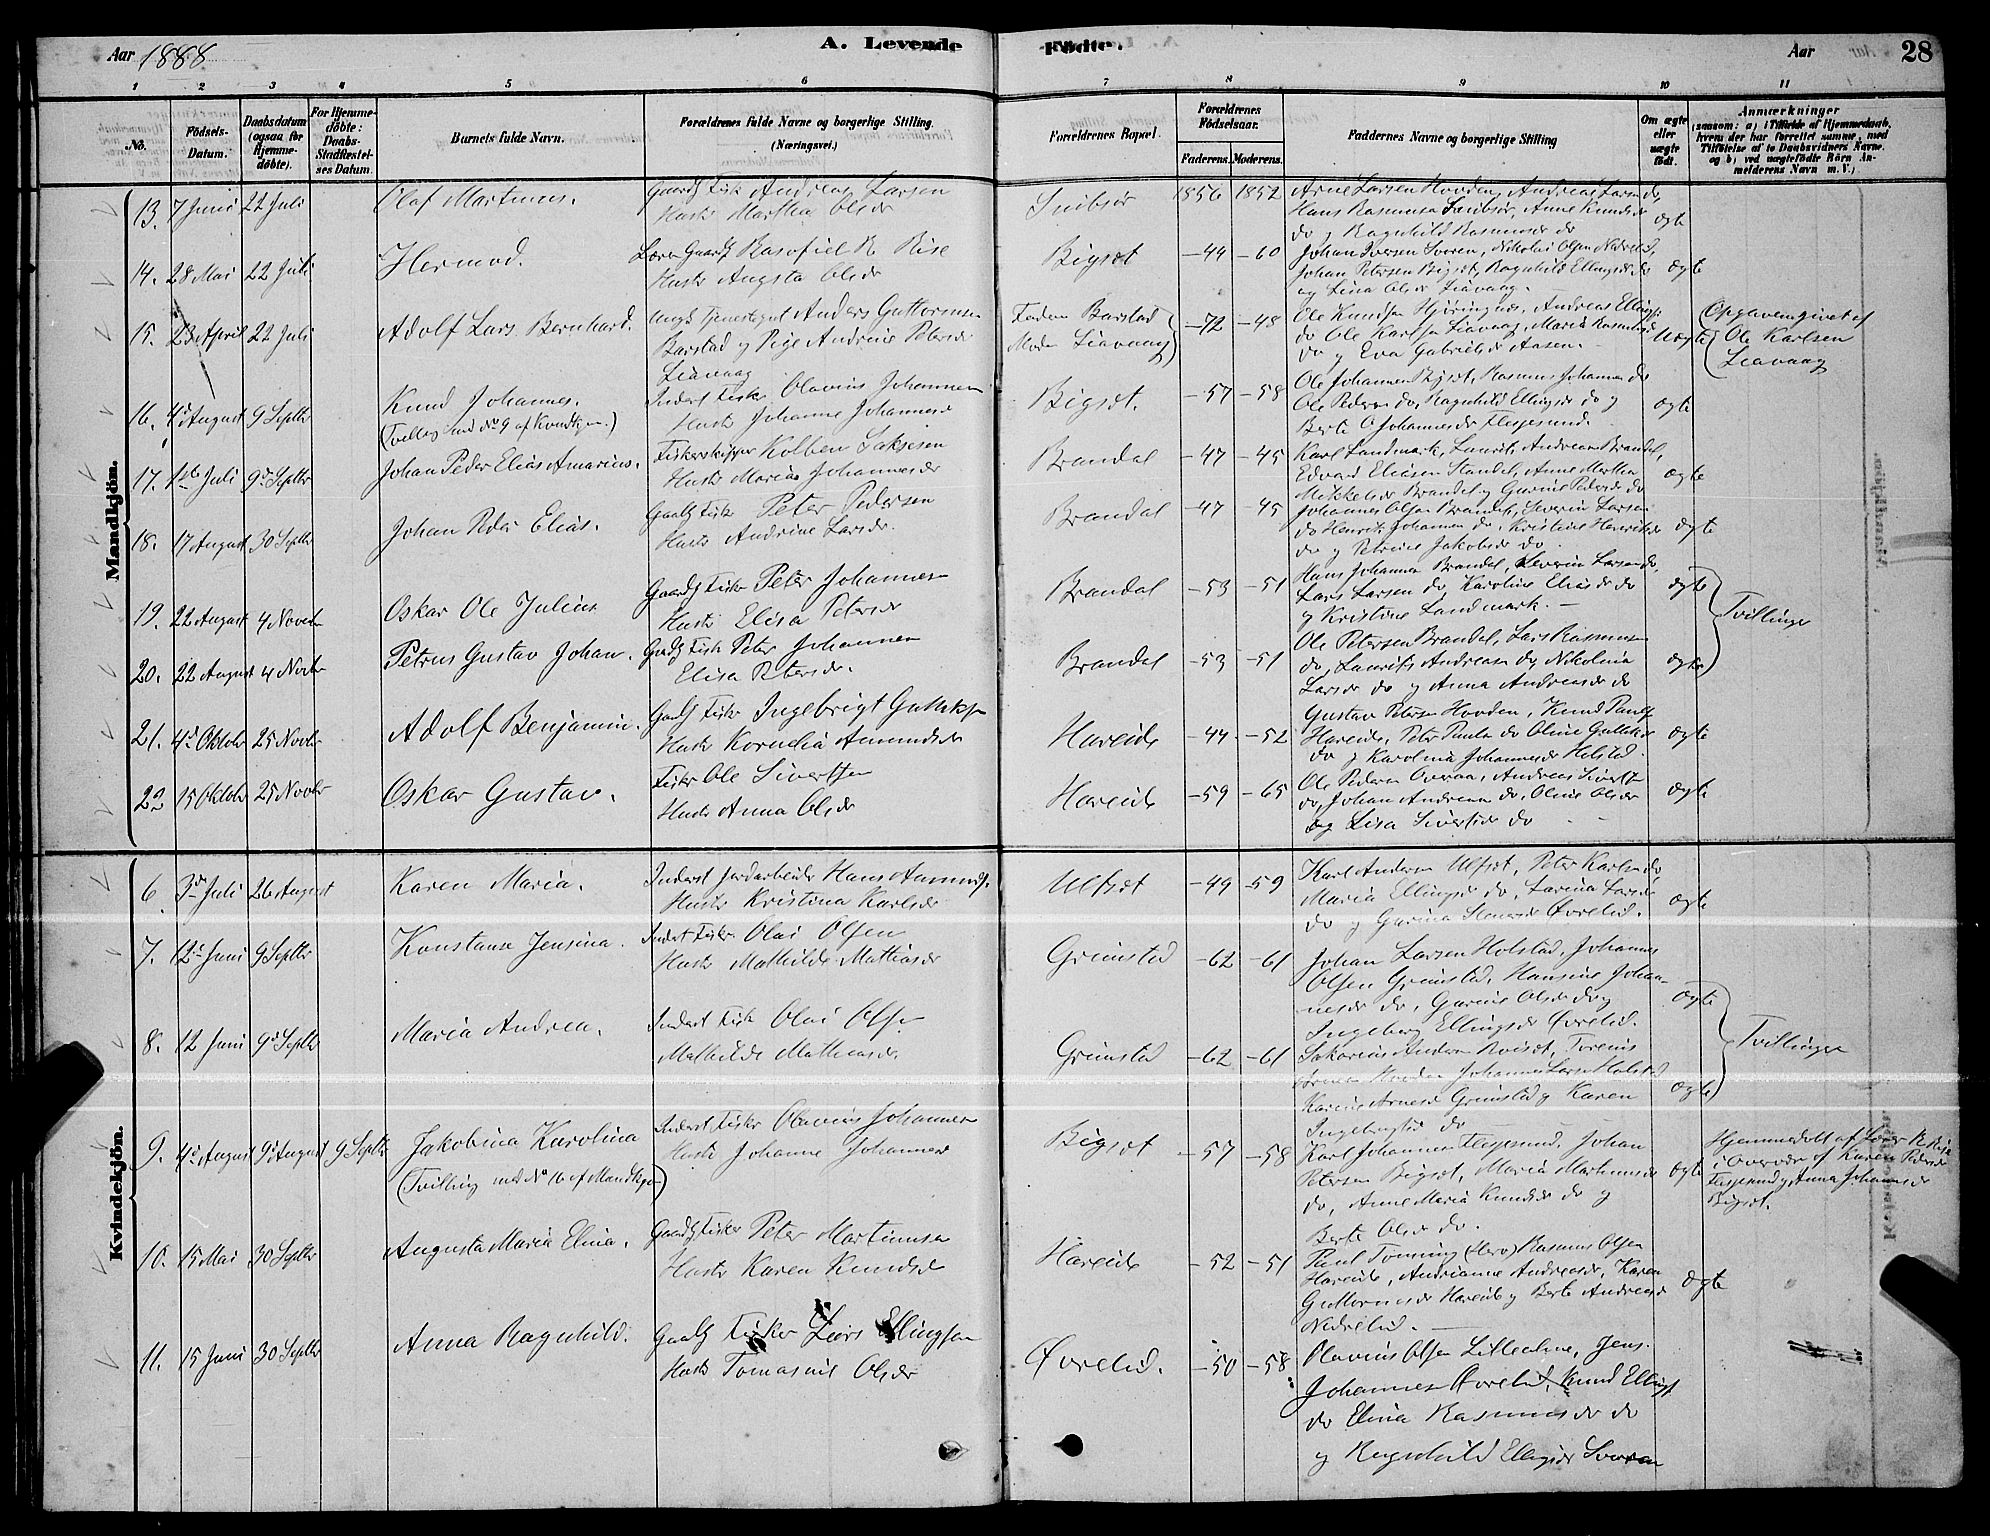 Aar 1888
A. Levende
Födte.
Aar
28
1 2 3 4 5 6 7 8 9 10 11
No.
Födsels-Datum.
Daabsdatum (ogsaa for Hjemme-döbte).
For Hjemme-döbte: Daabs-Stadfæstel-ses Datum.
Barnets fulde Navn.
Forældrenes fulde Navne og borgerlige Stilling. (Næringsvei.)
Forældrenes Bopæl.
Forældrenes Födselsaar.
Faderens. Moderens.
Faddernes Navne og borgerlige Stilling
Om ægte eller uægte födt.
Anmærkninger
(saasom: a) i Tilfælde af Hjemmedaab, hvem der har forrettet samme, med Tilföielse af to Daabsvidners Navne. og b) ved uægtefödte Börn Anmelderens Navn m. V.)
Mandkjön.
13. 7 Juni 22 Juli Olaf Martinus. Gaardb Fisk Andreas Larsen
Hustr Martha Olsdr Snibsör 1856 1852 Arne Larsen Hovden, Andreas Larsen do,
Hans Rasmussen Snibsör, Anne Knudsdr
do og Ragnhild Rasmusdr do ægte
14. 28 Mai 22 Juli Hermod. Lærer Gaardb Rasofiel R Rise
Hustr Augsta Olsdr Bigset -44 -60 Johan Iversen Sworen, Nikolai Olsen Nedrelid,
Johan Petersen Bigset, Ragnhild Ellingsdr do
og Lina Olsdr Liavaag. ægte
15. 23 April 22 Juli Adolf Lars Bernhard. Ungk Tjenestegut Anders Guttormsen
Barstad og Pige Andrine Petersdr
Liavaag Faderen Barstad
Moder Liavaag -72 -48 Ole Knudsen Hjöringnes, Andreas Ellings
do Ole Karlsen Liavaag, Maria Rasmusdr
do og Eva Gabrielsdr Aasen. Uægte Opgaven givet af
Ole Karlsen
Liavaag
16. 4d August 9 Septbr Knud Johannes.
(Tvilling med No 9 af Kvindkjøn.) Inderst Fisk. Olavius Johannesen
Hustr Johanne Johannesd Bigset. -57 -58 Ole Johannesen Bigset, Rasmus Johannesen do
Ole Pedersen do, Ragnhild Ellingsdr do og
Berte O Johannesdr Flesjesund. ægte
17. 1 Juli 9d Septbr Johan Peder Elias Amarius. Fiskerskipper Kolben Saksesen
Hustr Maria Johannesdr Brandal -47 -45 Karl Landmark, Laurits Andreasen Brandal,
Edvard Eliasen Standal, Anne Martha
Mikkelsdr Brandal og Gurine Pedersdr do ægte
18. 17 August 30 Septbr Johan Peder Elias. Gaardb Fisk Peter Pedersen
Hustr Andrine Larsdr. Brandal -47 -45 Johannes Olsen Brandal, Severin Larsen
do Henrik Johannesen do, Kristine Henriksdr
do og Petrine Jakobsdr do. ægte
19. 22 August 4 Novebr Oskar Ole Julius Gaardb Fisker Peter Johannesen
Hustr Elisa Petersdr Brandal -53 -51 Hans Johannesen Brandal, Severin Larsen do,
Lars Larsen do, Karoline Eliasdr do
og Kristine Landmark. ægte Tvillinger
20. 22 August 4 Novbr Petrus Gustav Johan. Gaardb Fisk Peter Johannesen
Elisa Petersdr. Brandal -53 -51 Ole Petersen Brandal, Lars Rasmussen
do, Laurits Andreasen do, Nikolina
Larsdr do og Anna Andreasdr do ægte
21. 4d Oktobr 25 Novbr Adolf Benjamin. Gaardb Fisk Ingebrigt Gullaksen
Hustr Kornelia Amundsdr Hareide -44 -52 Gustav Petersen Hovden, Knud Paulsen
Hareide, Peter Paulsen do Oline Gullaksd
do og Karolina Johannesdr Holstad. ægte
22 15 Oktobr 25 Novbr Oskar Gustav. Fisker Ole Sivertsen
Hustr Anna Olsdr Hareide -59 -65 Ole Pedersen Overaa, Andreas Sivertsen
do, Johan Andreasen do, Oline Olsdr
og Lisa Sivertsdr do ægte
Kvindekjön.
6. 3die Juli 26 August Karen Maria. Inderst Jordarbeider Hans Amundsen
Hustr Kristina Karlsdr Ulfset -49 -59 Karl Andersen Ulfset, Peter Karlsen do
Maria Ellingsdr do, Larina Larsdr
do og Gurina Stensdr Øvrelid. ægte
7. 12te Juni 9 Septbr Konstanse Jensina. Inderst Fisker Olai Olsen
Hustr Mathilde Mathiasdr Grimstad -62 -61 Johan Larsen Holstad, Johannes
Olsen Grimstad, Hansine Johan-
nesdr do, Gurine Olsdr do og
Ingeberg Ellingsdr Øvrelid. ægte Tvillinger
8. 12 Juni 9d Septbr Maria Andrea. Inderst Fisk Olai Olsen
Mathilde Mathiasdr Grimstad -62 -61 Sakarias Andersen Roiset, Torenius
Hovden Johannes Larsen Holstad
Karine Arnesdr Grimstad og Karen
Ingebrigtsd do ægte
9. 4de August 9de August 9 Septbr Jakobina Karolina
(Tvilling med No 16 af Mandkjøn) Inderst Fisker Olavius Johannesen
Hustr Johanne Johannesd Bigset -57 -58 Karl Johannesen Flesjesund, Johan
Petersen Bigset, Maria Martinusdr
do, Anne Maria Knudsdr do og
Berte Olsdr do. ægte Hjemmedøbt af Lærer R Rise
i Overvær af Karen Pedersdr
Flesjesund og Anna Johannesdr
Bigset.
10. 15 Mai 30 Septbr Augusta Maria Elina. Gaardb Fisker Peter Martinusen
Hustr Karen Knudsdr Hareide -52 -51 Paul Tonning (Herö) Rasmus Olsen
Hareide, Andrianne Andreasdr, Karen
Guttormsdr Hareide og Berte Andreasdr
Nedrelid. ægte
11. 15 Juni 30 Septbr Anna Ragnhild. Gaardb Fisker Lars Ellingsen
Hustr Tomasine Olsdr Øvrelid. -50 -58 Olavius Olsen Lilleeline, Jens
Johannesen Øvrelid, Knud Ellings
do Elina Rasmusdr do
og Ragnhild Ellingsdr Svoren